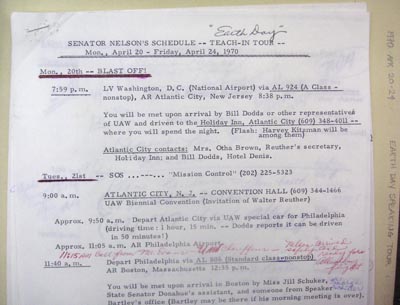 "Earth Day"
SENATOR NELSON'S SCHEDULE -- TEACH-IN TOUR --
Mon., April 20 - Friday, April 24, 1970
Mon., 20th -- BLAST OFF!
7:59 p.m. LV Washington, D.C. (National Airport) via AL 924 (A Class -
nonstop), AR Atlantic City, New Jersey 8:38 p.m.
You will be met upon arrival by Bill Dodds or other representatives
of UAW and driven to the Holiday Inn, Atlantic City (609) 348-4011 --
where you will spend the night. (Flash: Harvey Kitzman will be
among them)
Atlantic City contacts: Mrs. Otha Brown, Reuther's secretary,
Holiday Inn; and Bill Dodds, Hotel Denis.
Tues., 21st -- SOS ...----... "Mission Control" (202) 225-5323
9:00 a.m. ATLANTIC CITY, N.J. -- CONVENTION HALL (609) 344-1466
UAW Biennial Convention (Invitation of Walter Reuther)
Approx. 9:50 a.m. Depart Atlantic City via UAW special car for Philadelphia
(driving time: 1 hour, 15 min. -- Dodds reports it can be driven
in 50 minutes!)
Approx. 11:05 a.m. AR Philadelphia Airport
11:15
11:40 a.m. Depart Philadelphia via AL 806 (Standard class nonstop)
AR Boston, Massachusetts 12:35 p.m.
flight
You will be met upon arrival in Boston by Miss Jill Schuker,
State Senator Donahue's assistant, and someone from Speaker
Bartley's office (Bartley may be there if his morning meeting is over).
1970 APR 20-24 EARTH DAY SPEAKING TOUR